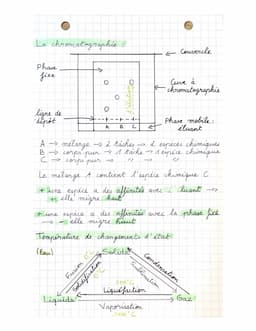 La chromatographie :
Couvercle
Phase
fixe
Cuve à
chromatographie
ligne de
dépôt
A B C
Phase mobile :
éluant
A → mélange → 2 tâches → 2 espèces chimiques
B → corps pur → 1 tâche → 1 espèce chimique
C → corps pur → " → " "
Le mélange A contient l'espèce chimique C
+ une espèce a des affinités avec l'éluant →
+ elle migre haut
+ une espèce a des affinités avec la phase fixe
→ elle migre
Température de changements d'état
(Eau)
Solide
Fusion
0°C
Solidification
Condensation
Sublimation
100°C
Liquéfaction
Liquide
Gaz
Vaporisation
100°C